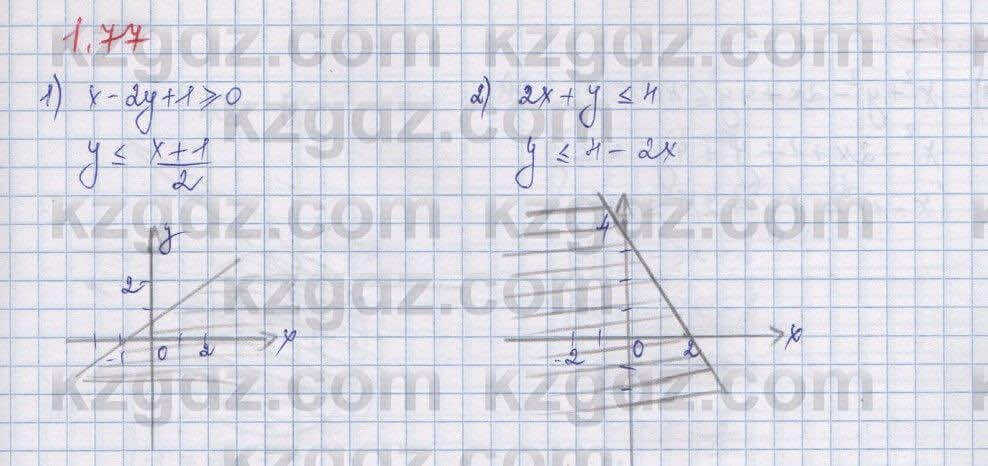 1.77
1) x - 2y + 1 ⩾ 0
y ≤ (x + 1)/2
2) 2x + y ≤ 4
y ≤ 4 - 2x
y
2
-1 0 2 x
4
-2 0 2 x
kzgdz.com kzgdz.com
kzgdz.com
kzgdz.com kzgdz.com
kzgdz.com
kzgdz.com kzgdz.com